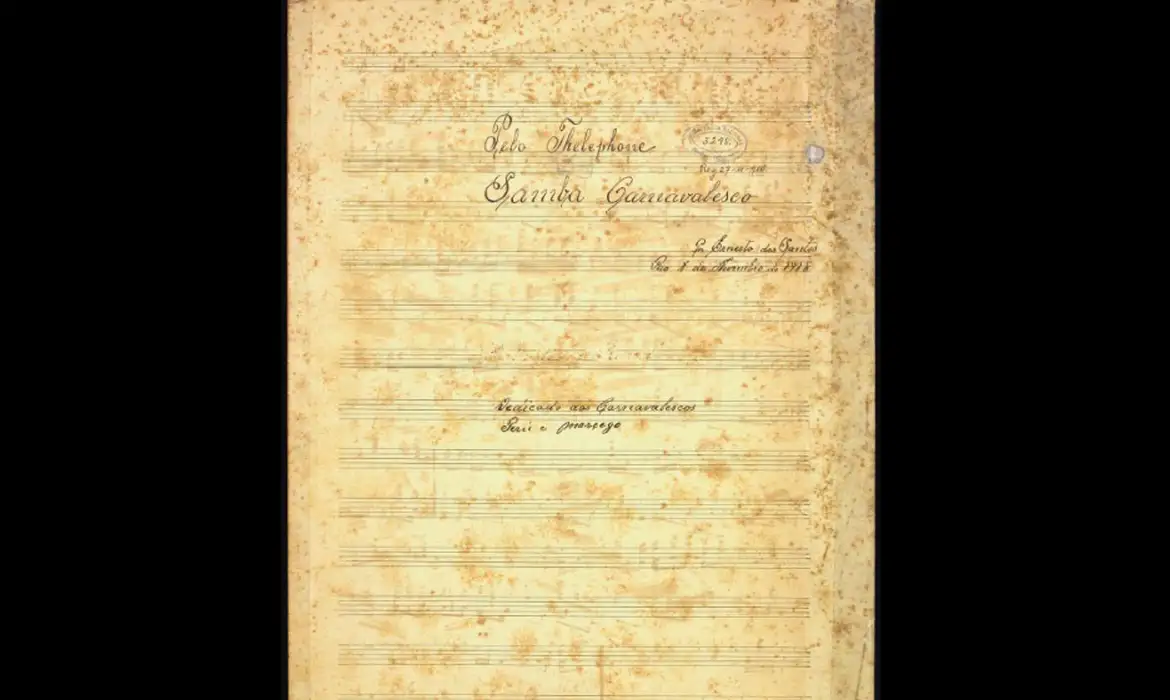 Pelo Thelephone
3295
Reg 27-11-916
Samba Carnavalesco
Por Ernesto dos Santos
Rio 1 de Novembro de 1916
Dedicado aos Carnavalescos
Perú e morcego